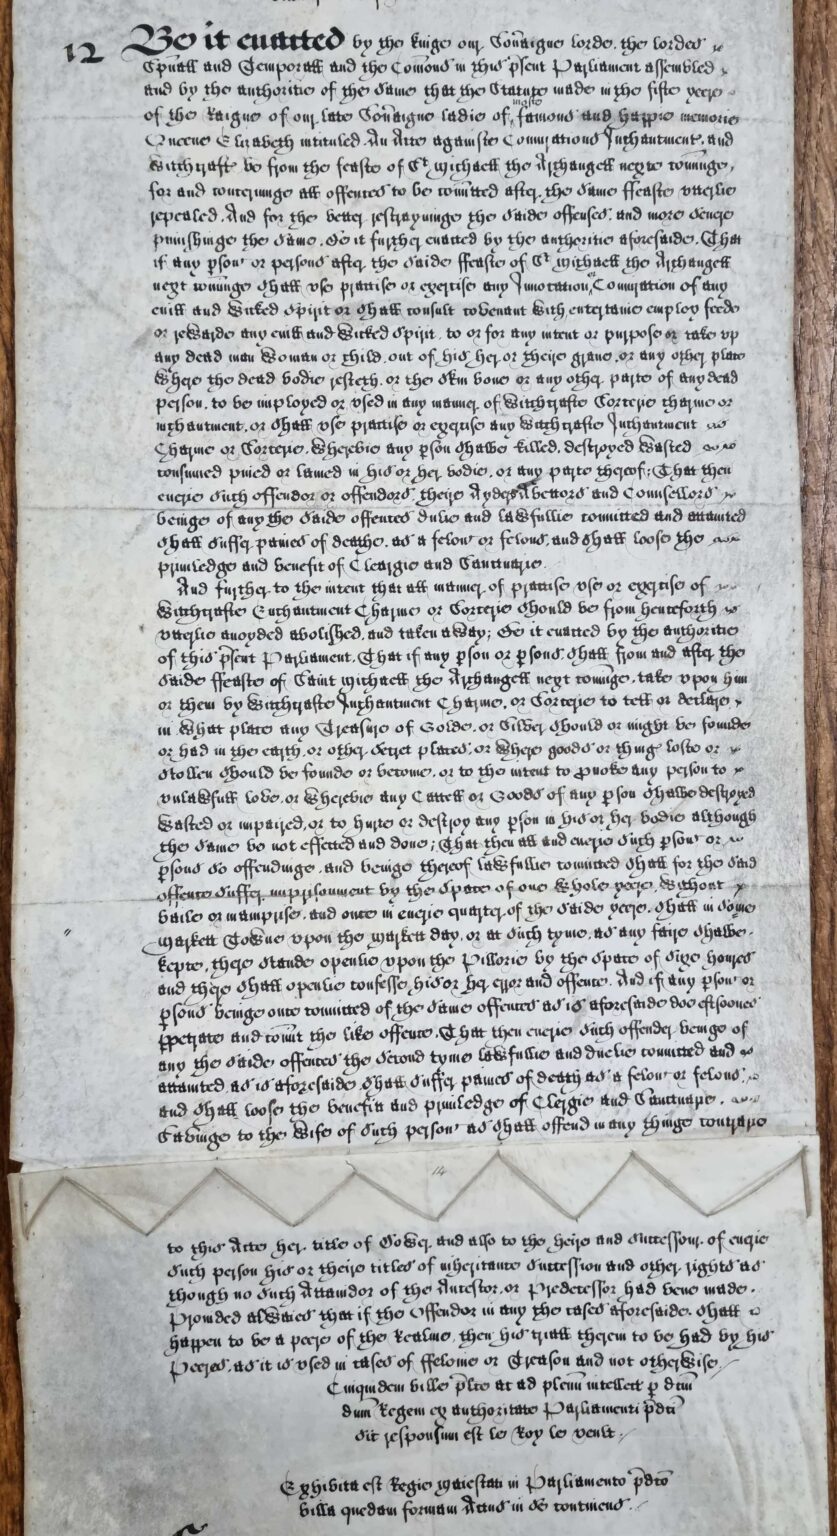 12 Be it enacted by the kinge our Sov̄aigne lorde the lordes
Sp̄uall and Temporall and the Com̄ons in this p̄sent Parliament assembled
and by the authoritie of the same that the Statute made in the fifte yeere
of the Raigne of our late Sov̄aigne ladie of moste famous and happie memorie
Queene Elizabeth intituled An Acte againste Coniurations Inchantmentes and
witchcraftes be from the feaste of St Michaell the Archangell nexte com̄inge,
for and concerninge all offences to be com̄itted after the same ffeaste utterlie
repealed. And for the better restrayninge the saide offenses, and more severe
punishinge the same, Be it further enacted by the authoritie aforesaide, That
if any p̱son or persons after the saide ffeaste of St Michaell the Archangell
next com̄inge shall use practise or exercise any Invocation or Coniuration of any
evill and wicked Spirit or shall consult covenant with entertaine employ feede
or rewarde any evill and wicked Spirit to or for any intent or purpose or take up
any dead man woman or child out of his her or theire grave, or any other place
where the dead bodie resteth, or the skin bone or any other parte of any dead
person, to be imployed or used in any manner of witchcrafte Sorcerie charme or
inchantment, or shall use practise or exercise any witchcrafte Inchantment
Charme or Sorcerie, wherebie any p̱son shalbe killed, destroyed wasted
consumed pined or lamed in his or her bodie, or any parte thereof; That then
everie such offendor or offendors theire Ayders Abettors and Counsellors
beinge of any the saide offences dulie and lawfullie convicted and attainted
shall suffer paines of deathe as a felon or felons, and shall loose the
priviledge and benefit of Cleargie and Sanctuarie.
And further to the intent that all manner of practise use or exercise of
witchcrafte Enchantment Charme or Sorcerie should be from henceforth
utterlie avoyded abolished, and taken away; Be it enacted by the authoritie
of this p̄sent Parliament, That if any p̱son or p̱sons shall from and after the
saide ffeaste of Saint Michaell the Archangell next com̄inge, take upon him
or them by witchcrafte Inchantment Charme, or Sorcerie to tell or declare
in what place any Treasure of Golde, or Silver should or might be founde
or had in the earth, or other secret places, or where goods or thinges loste or
stollen should be founde or become, or to the intent to p̱voke any person to
unlawfull love, or wherebie any Cattell or Goods of any p̱son shalbe destroyed
wasted or impaired, or to hurte or destroy any p̱son in his or her bodie although
the same be not effected and done; That then all and everie such p̱son or
p̱sons so offendinge, and beinge thereof lawfullie convicted shall for the said
offence suffer imprisonment by the space of one whole yeere, without
baile or mainprise, and once in everie quarter of the saide yeere, shall in some
markett Towne upon the markett day, or at such tyme as any faire shalbe
kepte, there stande openlie upon the Pillorie by the space of sixe houres
and there shall openlie confesse his or her error and offence. And if any p̱son or
p̱sons beinge once convicted of the same offences as is aforesaide doe eftsoones
p̱petrate and com̄it the like offence, That then everie such offender beinge of
any the saide offences the second tyme lawfullie and duelie convicted and
attainted as is aforesaide shall suffer paines of death as a felon or felons,
and shall loose the benefitt and priviledge of Clergie and Sanctuarie.
Savinge to the wife of such person as shall offend in any thinge contrarie
14
to this Acte her title of Dower and also to the heire and successour of everie
such person his or theire titles of inheritance succession and other rights as
though no such Attaindor of the Ancestor or Predecessor had bene made.
Provided alwaies that if the Offendor in any the cases aforesaide shall
happen to be a peere of the Realme, then his triall therein to be had by his
Peeres, as it is used in cases of ffelonie or Treason and not otherwise.
Cuiquidem bille p̄lce et ad plenū intellect p̱ dcm̄
dnū Regem ex authoritate Parliamenti p̄dcī
sit responsum est le Roy le veult.
Exhibita est Regie maiestati in Parliamento p̄dcō
billa quedam formam Actus in se continens.